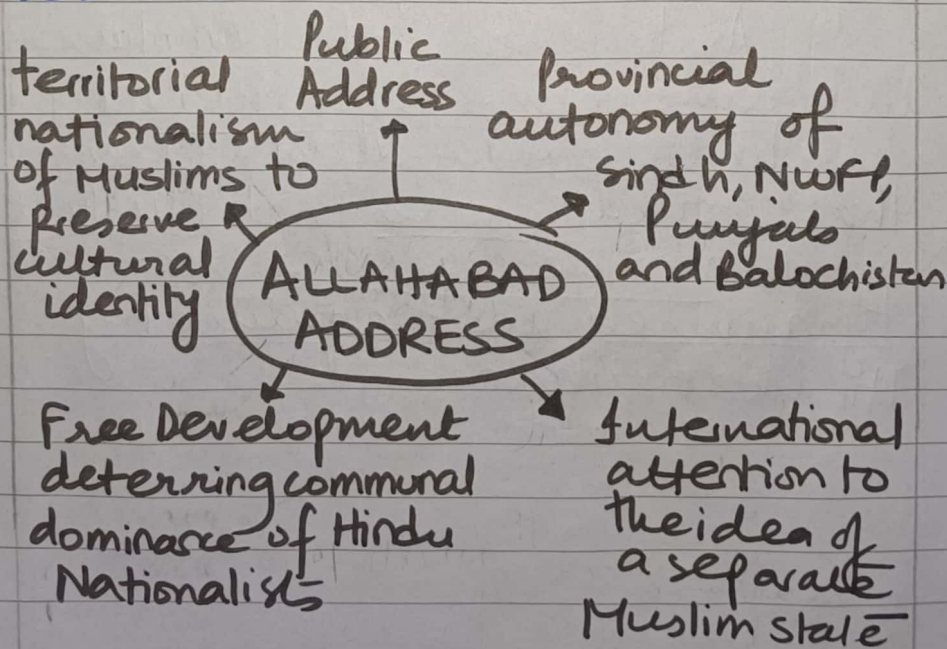 Public
Address
territorial
nationalism
of Muslims to
Preserve
cultural
identity
Provincial
autonomy of
Sindh, NWFP,
Punjab
and Balochistan
ALLAHABAD
ADDRESS
Free Development
deterring communal
dominance of Hindu
Nationalists
International
attention to
the idea of
a separate
Muslim state